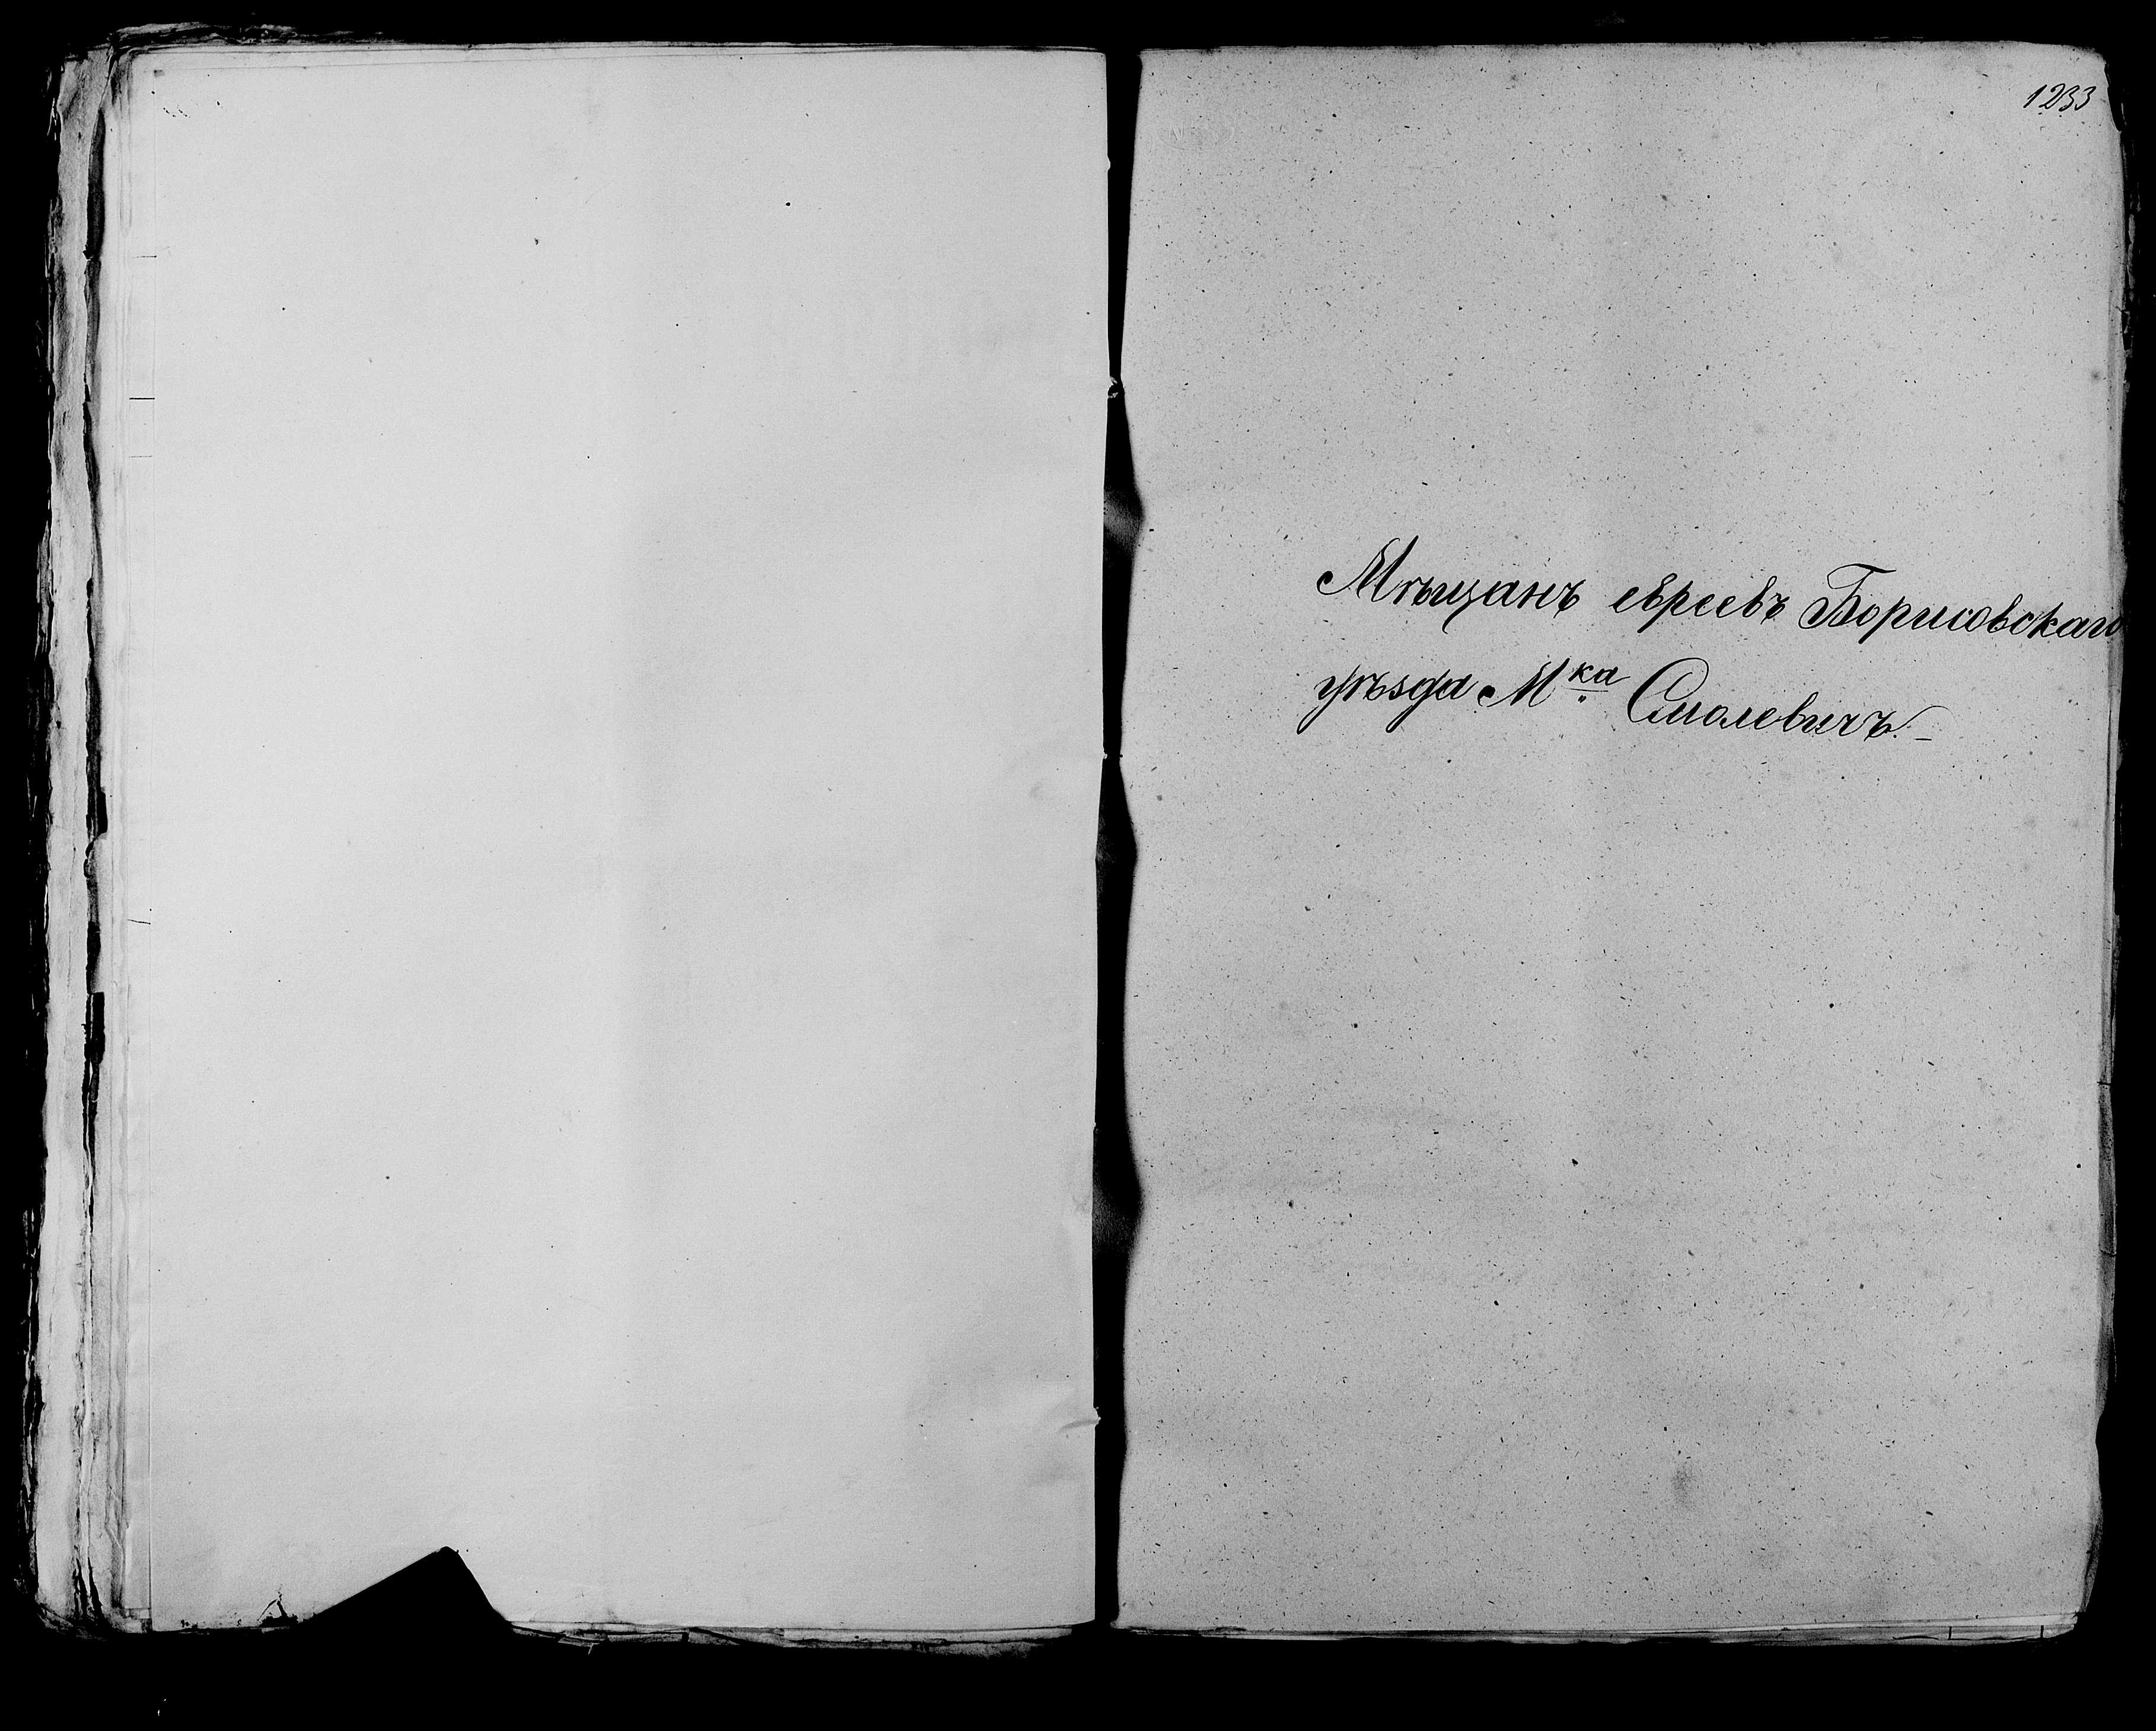 1233
Мѣщанъ евреевъ Борисовскаго
уѣзда М<sup>ка</sup> Смолевичъ. –